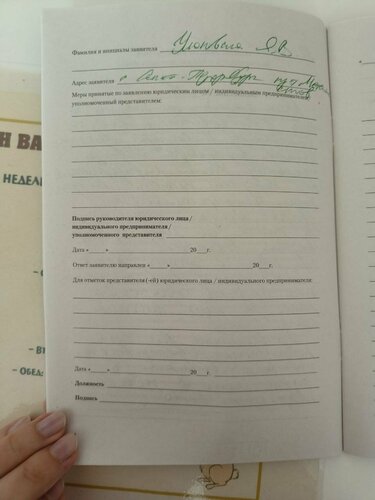 Фамилия и инициалы заявителя
Адрес заявителя г. Санкт-Петербург
Меры принятые по заявлению юридическим лицом / индивидуальным предпринимателем,
уполномоченный представителем:
Подпись руководителя юридического лица /
индивидуального предпринимателя/
уполномоченного представителя
Дата «____» ____________ 20___г.
Ответ заявителю направлен «____» ____________ 20___г.
Для отметок представителя (-ей) юридического лица / индивидуального предпринимателя:
Дата «____» ____________ 20___г.
Должность
Подпись
Н ВА
НЕДЕЛ
- ВТ
- ОБЕД